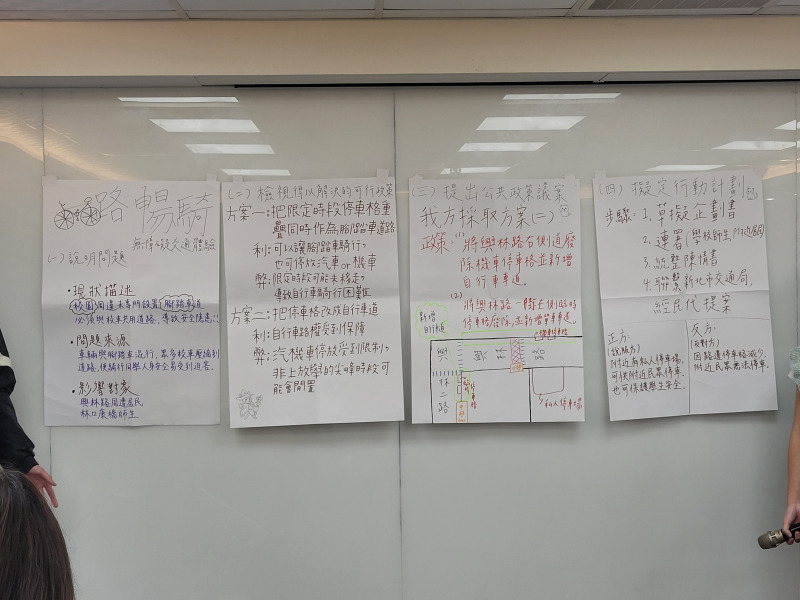 路暢騎
無障礙交通體驗
(一) 說明問題
•現狀描述
校園周邊未專門設置腳踏車道
必須與校車共用道路，導致安全隱憂!!
•問題來源
車輛與腳踏車混行，眾多校車壓縮到
道路，使騎行同學人身安全易受到迫害。
•影響對象
興林路周遭居民
林口康橋師生
(二) 檢視得以解決的可行政策
方案一:把限定時段停車格重
疊同時作為腳踏車道路
利:可以讓腳踏車騎行，
也可停放汽車or機車
弊:限定時段可能未移走，
導致自行車騎行困難
方案二:把停車格改成自行車道
利:自行車路權受到保障
弊:汽機車停放受到限制，
非上放學的尖峰時段可
能會閒置
(三) 提出公共政策議案
我方採取方案(二)
政策:(1)
將興林路右側道廢
除機車停車格並新增
自行車車道。
(2)
將興林二路左側臨時
停車格廢除，並新增單車道。
新增
自行車道
興林路
林二路
私人停車場
(四) 擬定行動計劃
步驟:1.草擬企劃書
2.連署(學校師生,附近居民)
3.統整陳情書
4.聯繫新北市交通局,
經民代提案
正方:
(說服方)
附近有私人停車場,
可供附近民眾停車,
也可保護學生安全
反方:
(反對方)
因路邊停車格減少,
附近民眾無法停車.